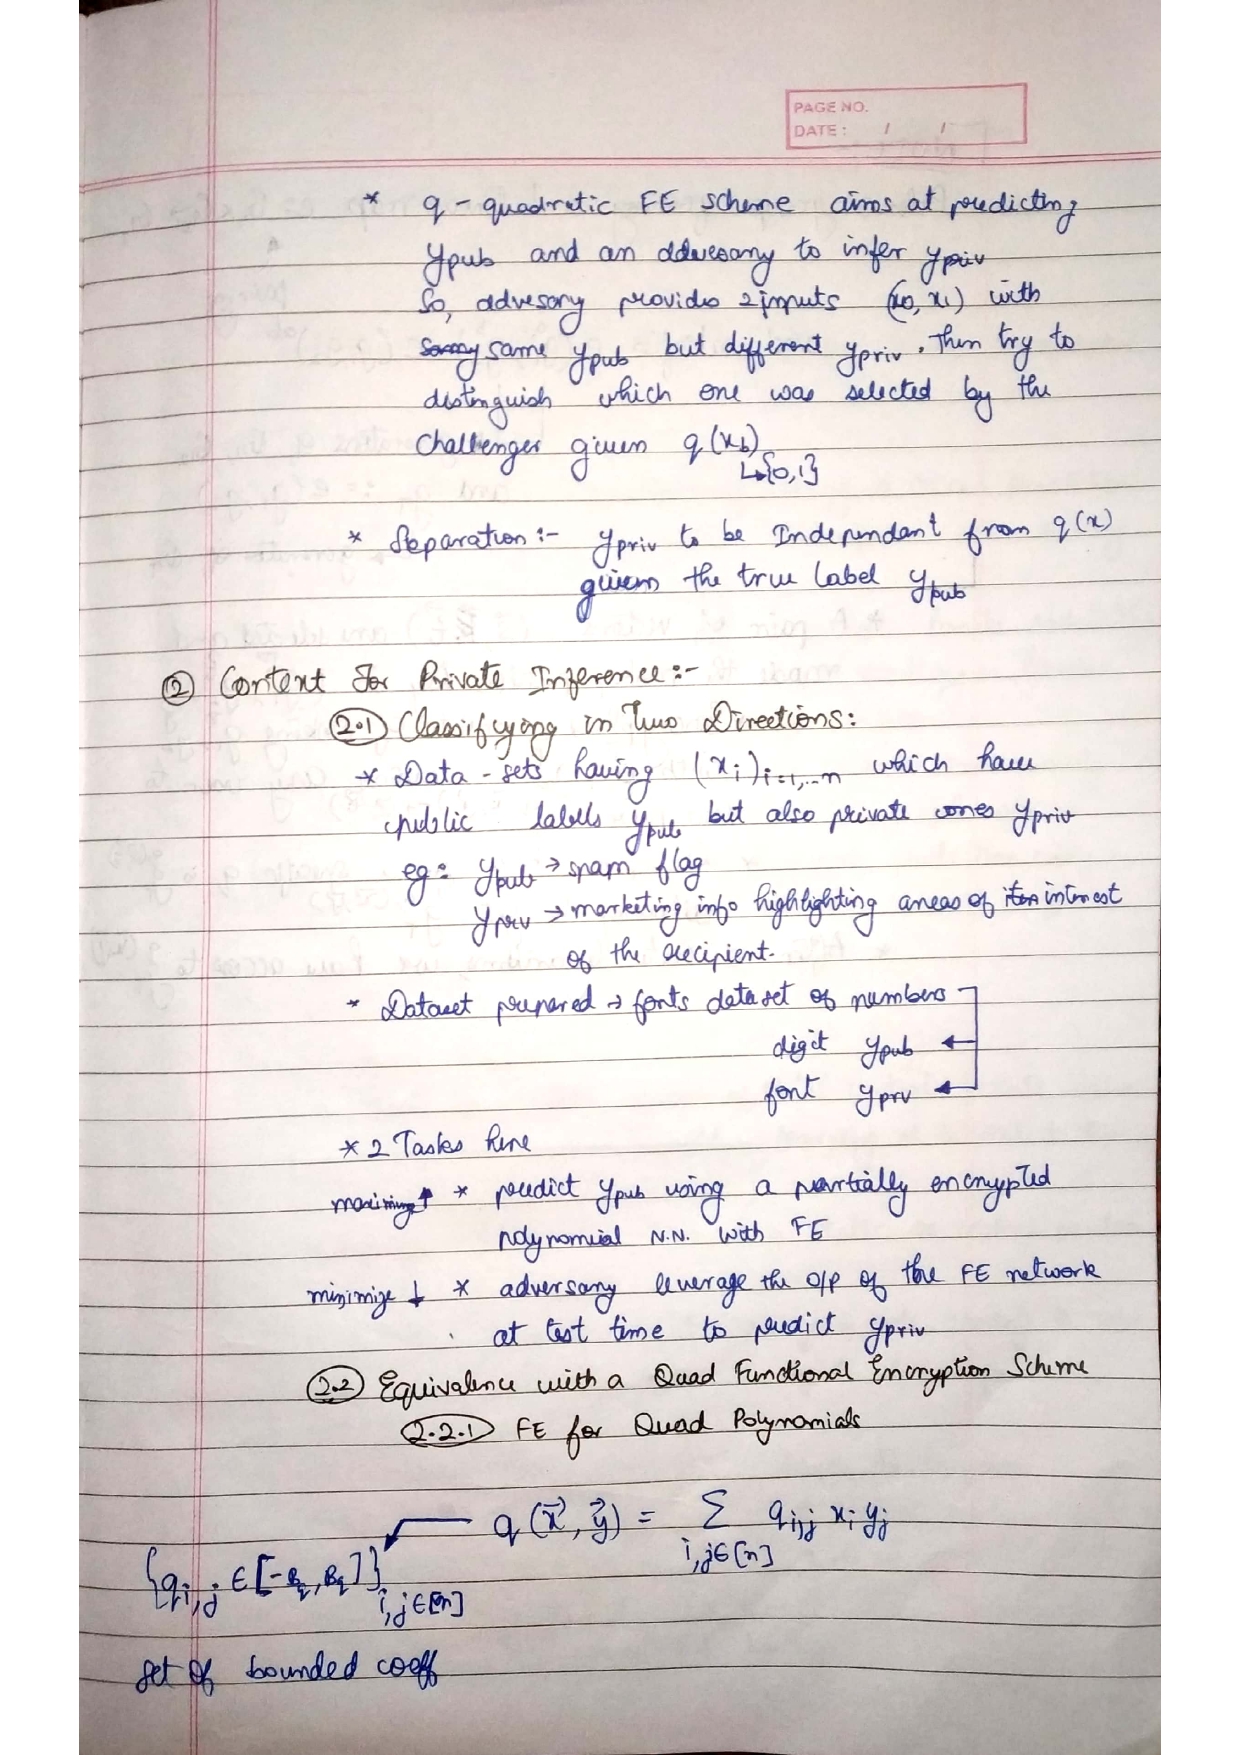 PAGE NO.
DATE : / /
* q - quadratic FE scheme aims at predicting
ypub and an advesary to infer ypriv
So, advesary provides 2 inputs (x0, x1) with
same ypub but different ypriv. Then try to
distinguish which one was selected by the
challenger given q(xb)
↳{0,1}
* Separation :- ypriv to be Independant from q(x)
given the true label ypub
② Context For Private Inference :-
2.1 Classifying in Two Directions:
* Data - sets having (xi)i=1,...n which have
public labels ypub but also private ones ypriv
eg: ypub → spam flag
yprv → marketing info highlighting areas of interest
of the recipient.
* Dataset prepared → fonts dataset of numbers
digit ypub ←
font yprv ←
* 2 Tasks here
maximize ↑ * predict ypub using a partially encrypted
polynomial N.N. with FE
minimize ↓ * adversary leverage the o/p of the FE network
at test time to predict ypriv
2.2 Equivalence with a Quad Functional Encryption Scheme
2.2.1 FE for Quad Polynomials
q(x⃗, y⃗) = Σ qi,j xi yj
i,j∈[n]
{qi,j ∈ [-Bq, Bq]}i,j∈[n]
set of bounded coeff